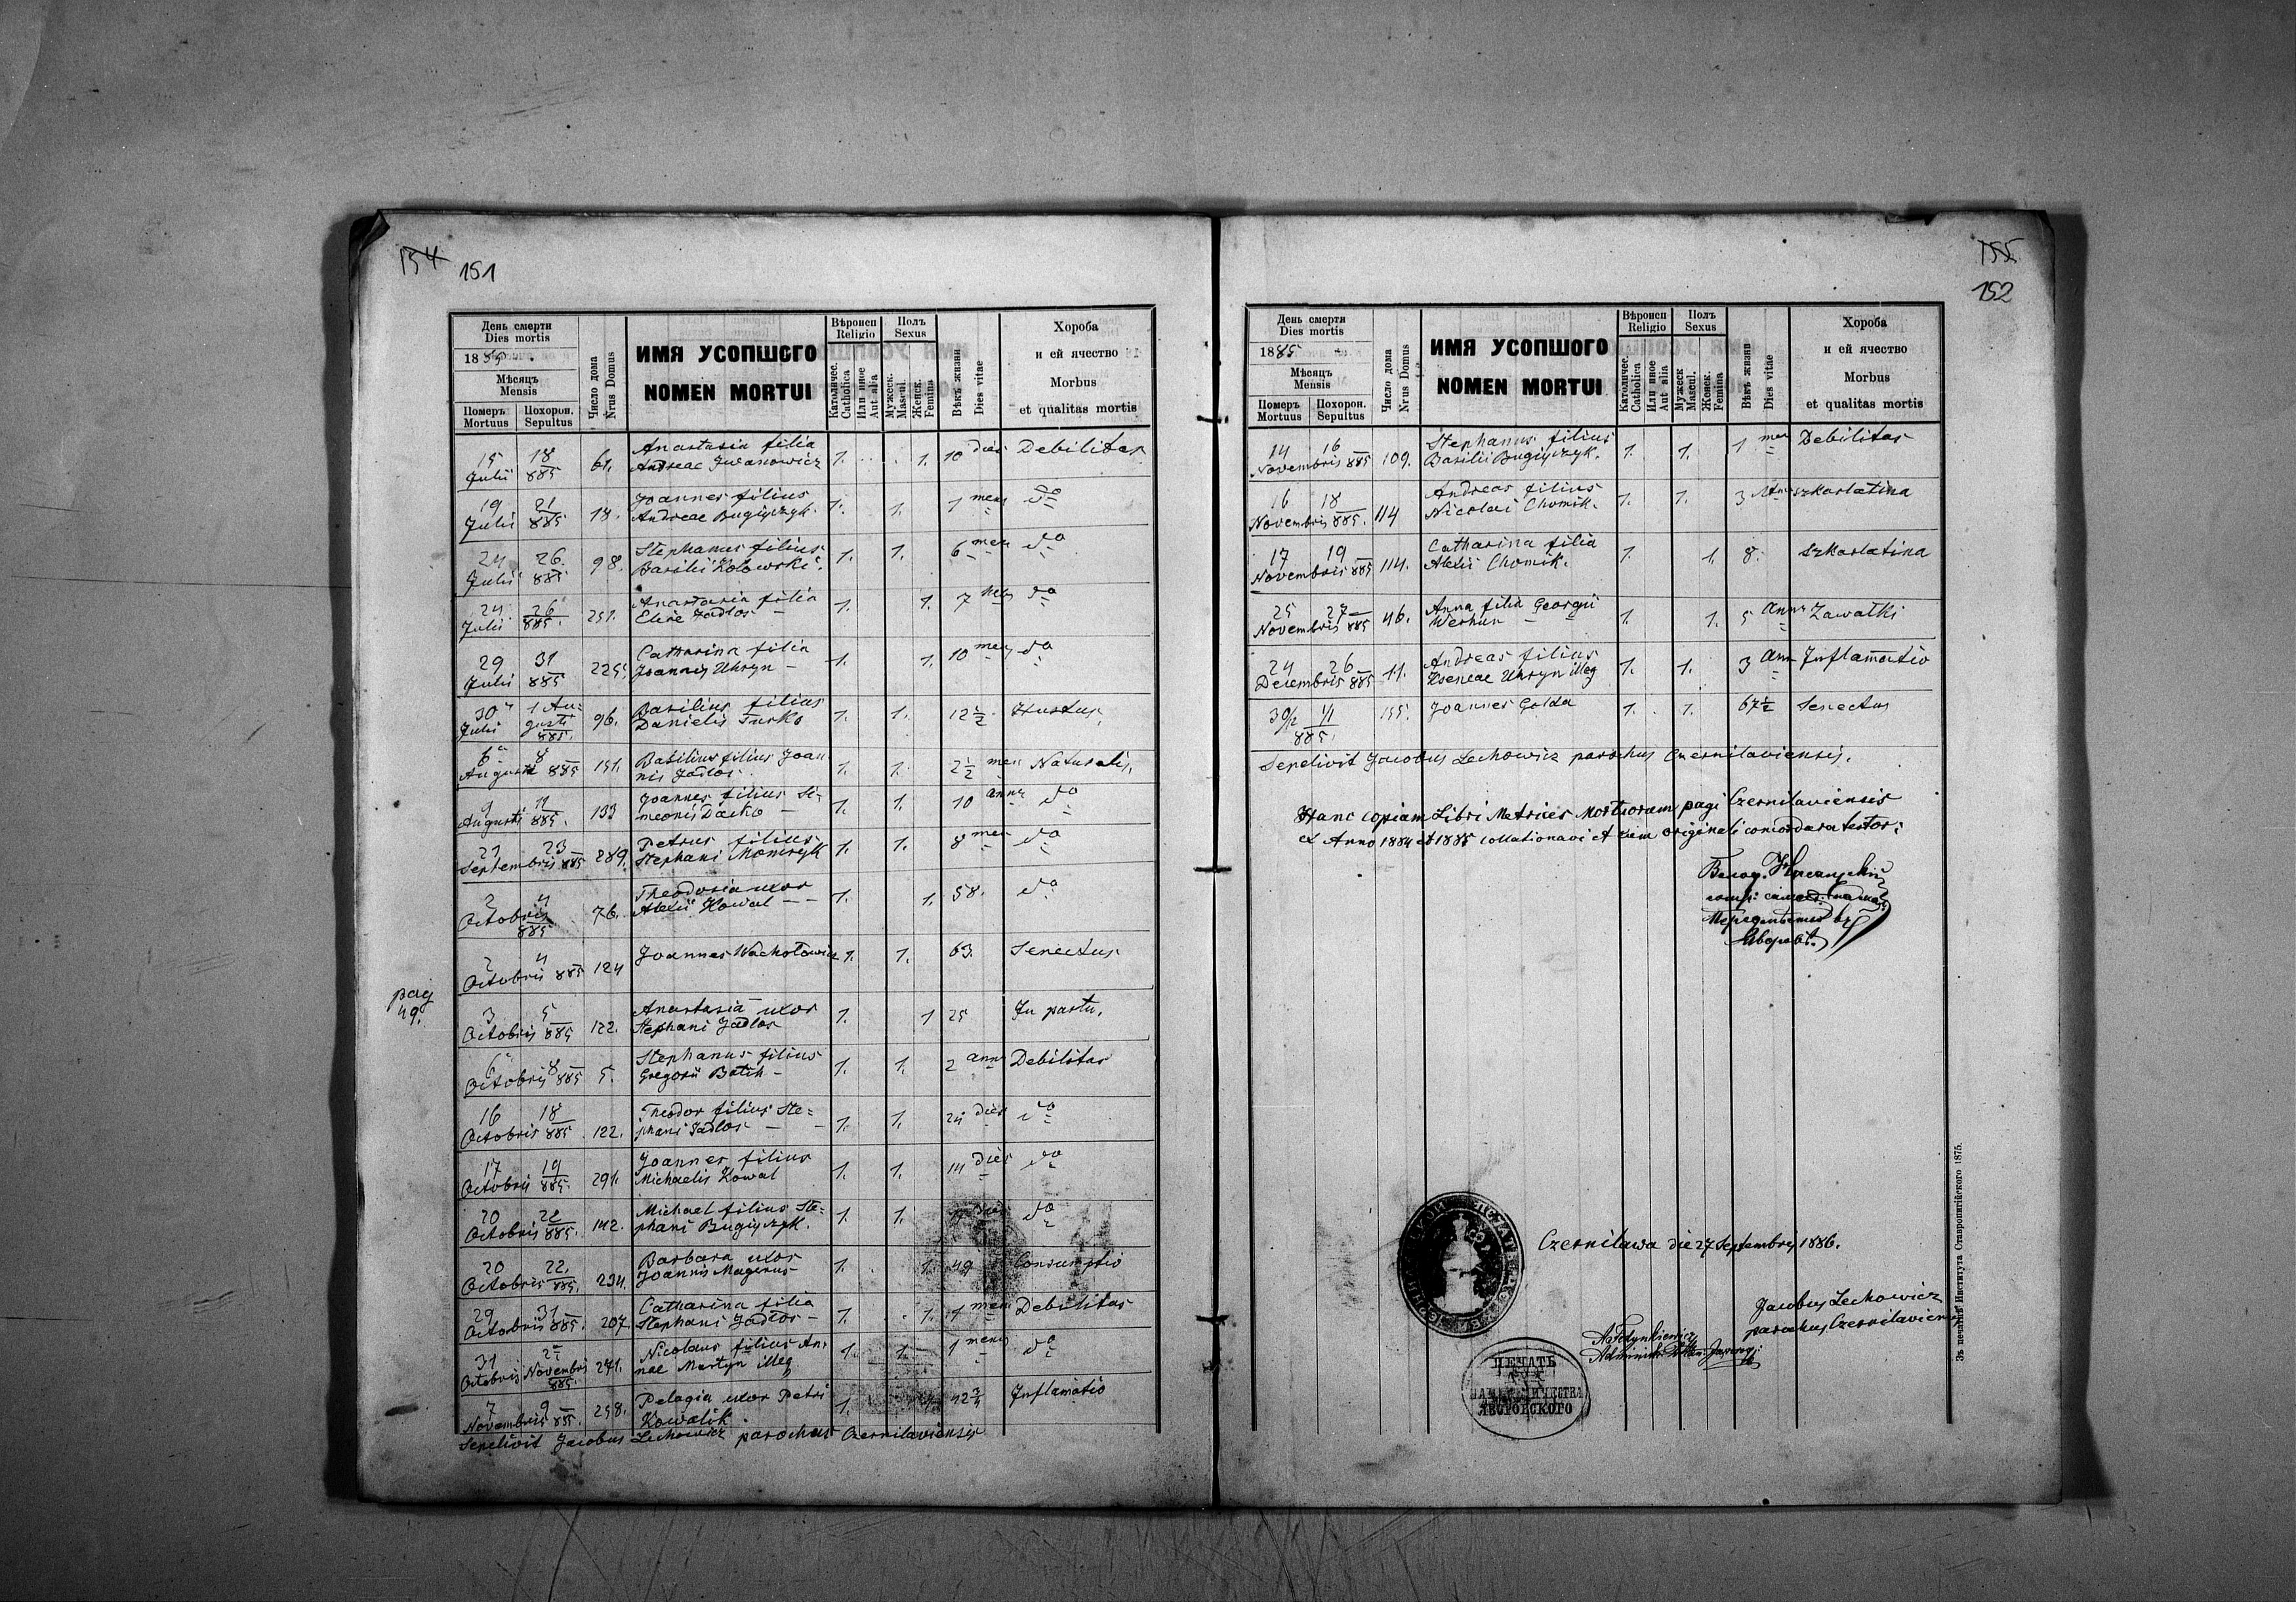 154 151
День смерти
Dies mortis
1885
Мѣсяцъ
Mensis
Померъ Похорон.
Mortuus Sepultus
Число дома
Nrus Domus
ИМЯ УСОПШОГО
NOMEN MORTUI
Вѣроисп
Religio
Католичес.
Catholica
Или иное
Aut alia
Полъ
Sexus
Мужеск.
Mascul.
Женск.
Femina
Вѣкъ жизни
Dies vitae
Хороба
и ей ячество
Morbus
et qualitas mortis
15 18 Anastasia filia
Julii 885 61. Andreae Iwanowicz 1. 1. 10 dies Debilitas
19 21 Joannes filius
Julii 885 18. Andreae Bugijczyk. 1. 1. 1 mens do
24 26. Stephanus filius
Julii 885 98. Basilii Kotowski. 1. 1. 6 men do
24 26 Anastasia filia
Julii 885. 251. Eliae Jadlos 1. 1. 7 do
29 31 Catharina filia
Julii 885 225. Joannis Uhryn 1. 1. 10 men do
30 1 Au- Basilius filius
Julii gusti 96. Danielis Fusko 1. 1. 12 1/2
885.
6 8 Basilius filius Joan
Augusti 885 151. nis Jadlos 1. 1. 2 1/2 men Naturalis.
9 11 Joannes filius Si-
Augusti 885. 133 meonis Dacko 1. 1. 10 anns do
21 23 Petrus filius
Septembris 885 289. Stephani 1. 1. 8 men do
2 4 Theodosia uxor
Octobris 76. Alexii Kowal 1. 1. 58. do
885
2 4 Joannes Wacholowicz 1. 1. 63. Senectus
Octobris 885 124
pag
49.
3 5 Anastasia uxor
Octobris 885 122. Stephani Jadlos 1. 1 25 In partu.
6 8 Stephanus filius
Octobris 885 5. Gregorii Batih 1. 1. 2 anns Debilitas
16 18 Theodor filius Ste=
Octobris 885. 122. phani Jadlos 1. 1. 24 dies do
17 19 Joannes filius
Octobris 885. 291. Michaelis Kowal 1. 1. 14 dies do
20 22 Michael filius Ste=
Octobris 885. 142. phani Bugijczyk. 1. 1. do
20 22. Barbara uxor
Octobris 885. 234. Joannis Magerus 1. 1. 49 Consumptio
29 31 Catharina filia
Octobris 885. 207 Stephani Jadlos 1. 1. 1 mens Debilitas
31 2 Nicolaus filius An-
Octobris Novembris 271. nae Martyn illeg 1. 1. 1 mens do
885.
7 9 Pelagia uxor Petri
Novembris 885. 258. Kowalik. 1. 1. 42 3/4 Inflamatio
Sepelivit Jacobus Lechowicz parochus Czernilaviensis
155
152
День смерти
Dies mortis
1885
Мѣсяцъ
Mensis
Померъ Похорон.
Mortuus Sepultus
Число дома
Nrus Domus
ИМЯ УСОПШОГО
NOMEN MORTUI
Вѣроисп
Religio
Католичес.
Catholica
Или иное
Aut alia
Полъ
Sexus
Мужеск
Mascul.
Женск.
Femina
Вѣкъ жизни
Dies vitae
Хороба
и ей ячество
Morbus
et qualitas mortis
14 16 Stephanus filius
Novembris 885 109. Basilii Bugijczyk. 1. 1. 1 men Debilitas
16 18 Andreas filius
Novembris 885. 114 Nicolai Chomik. 1. 1. 3 szkarlatina
17 19 Catharina filia
Novembris 885 114. Alexii Chomik. 1. 1. 8. szkarlatina
25 27 Anna filia Georgii
Novembris 885 46. Werhun 1. 1. 5 anns Zawalki
24 26 Andreas filius
Decembris 885 11. Kseneae Uhryn illeg 1. 1. 3 ann Inflamatio
30/12 1/1 155. Joannes Golda 1. 1. 67 1/2 Senectus
885.
Sepelivit Jacobus Lechowicz parochus Czernilaviensis.
Hanc copiam Libri Metrices Mortuorum pagi Czernilaviensis
ex Anno 1884 et 1885 collationavi et cum originali concordare testor:
Czernilawa die 27 Septembris 1886.
Jacobus Lechowicz
parochus Czernilavien
ПЕЧАТЬ
НАМѢСТНИЧЕСТВА
ЯВОРОВСКОГО
Зъ печатнѣ Института Ставропигійского 1875.